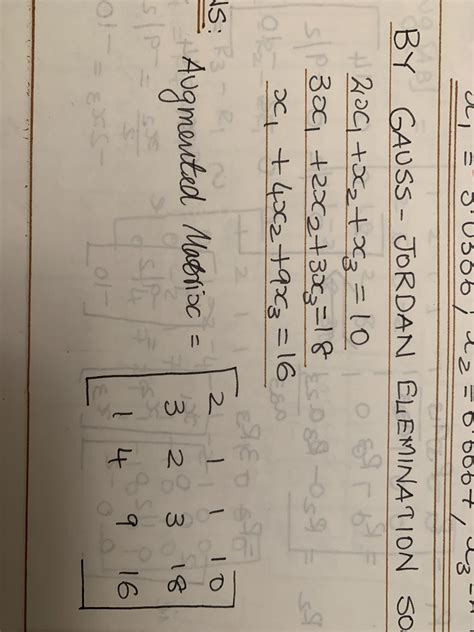 BY GAUSS-JORDAN ELEMINATION SO
2x₁+x₂+x₃=10
3x₁+2x₂+3x₃=18
x₁+4x₂+9x₃=16
NS:
Augmented Matrix =
2 1 1 10
3 2 3 18
1 4 9 16